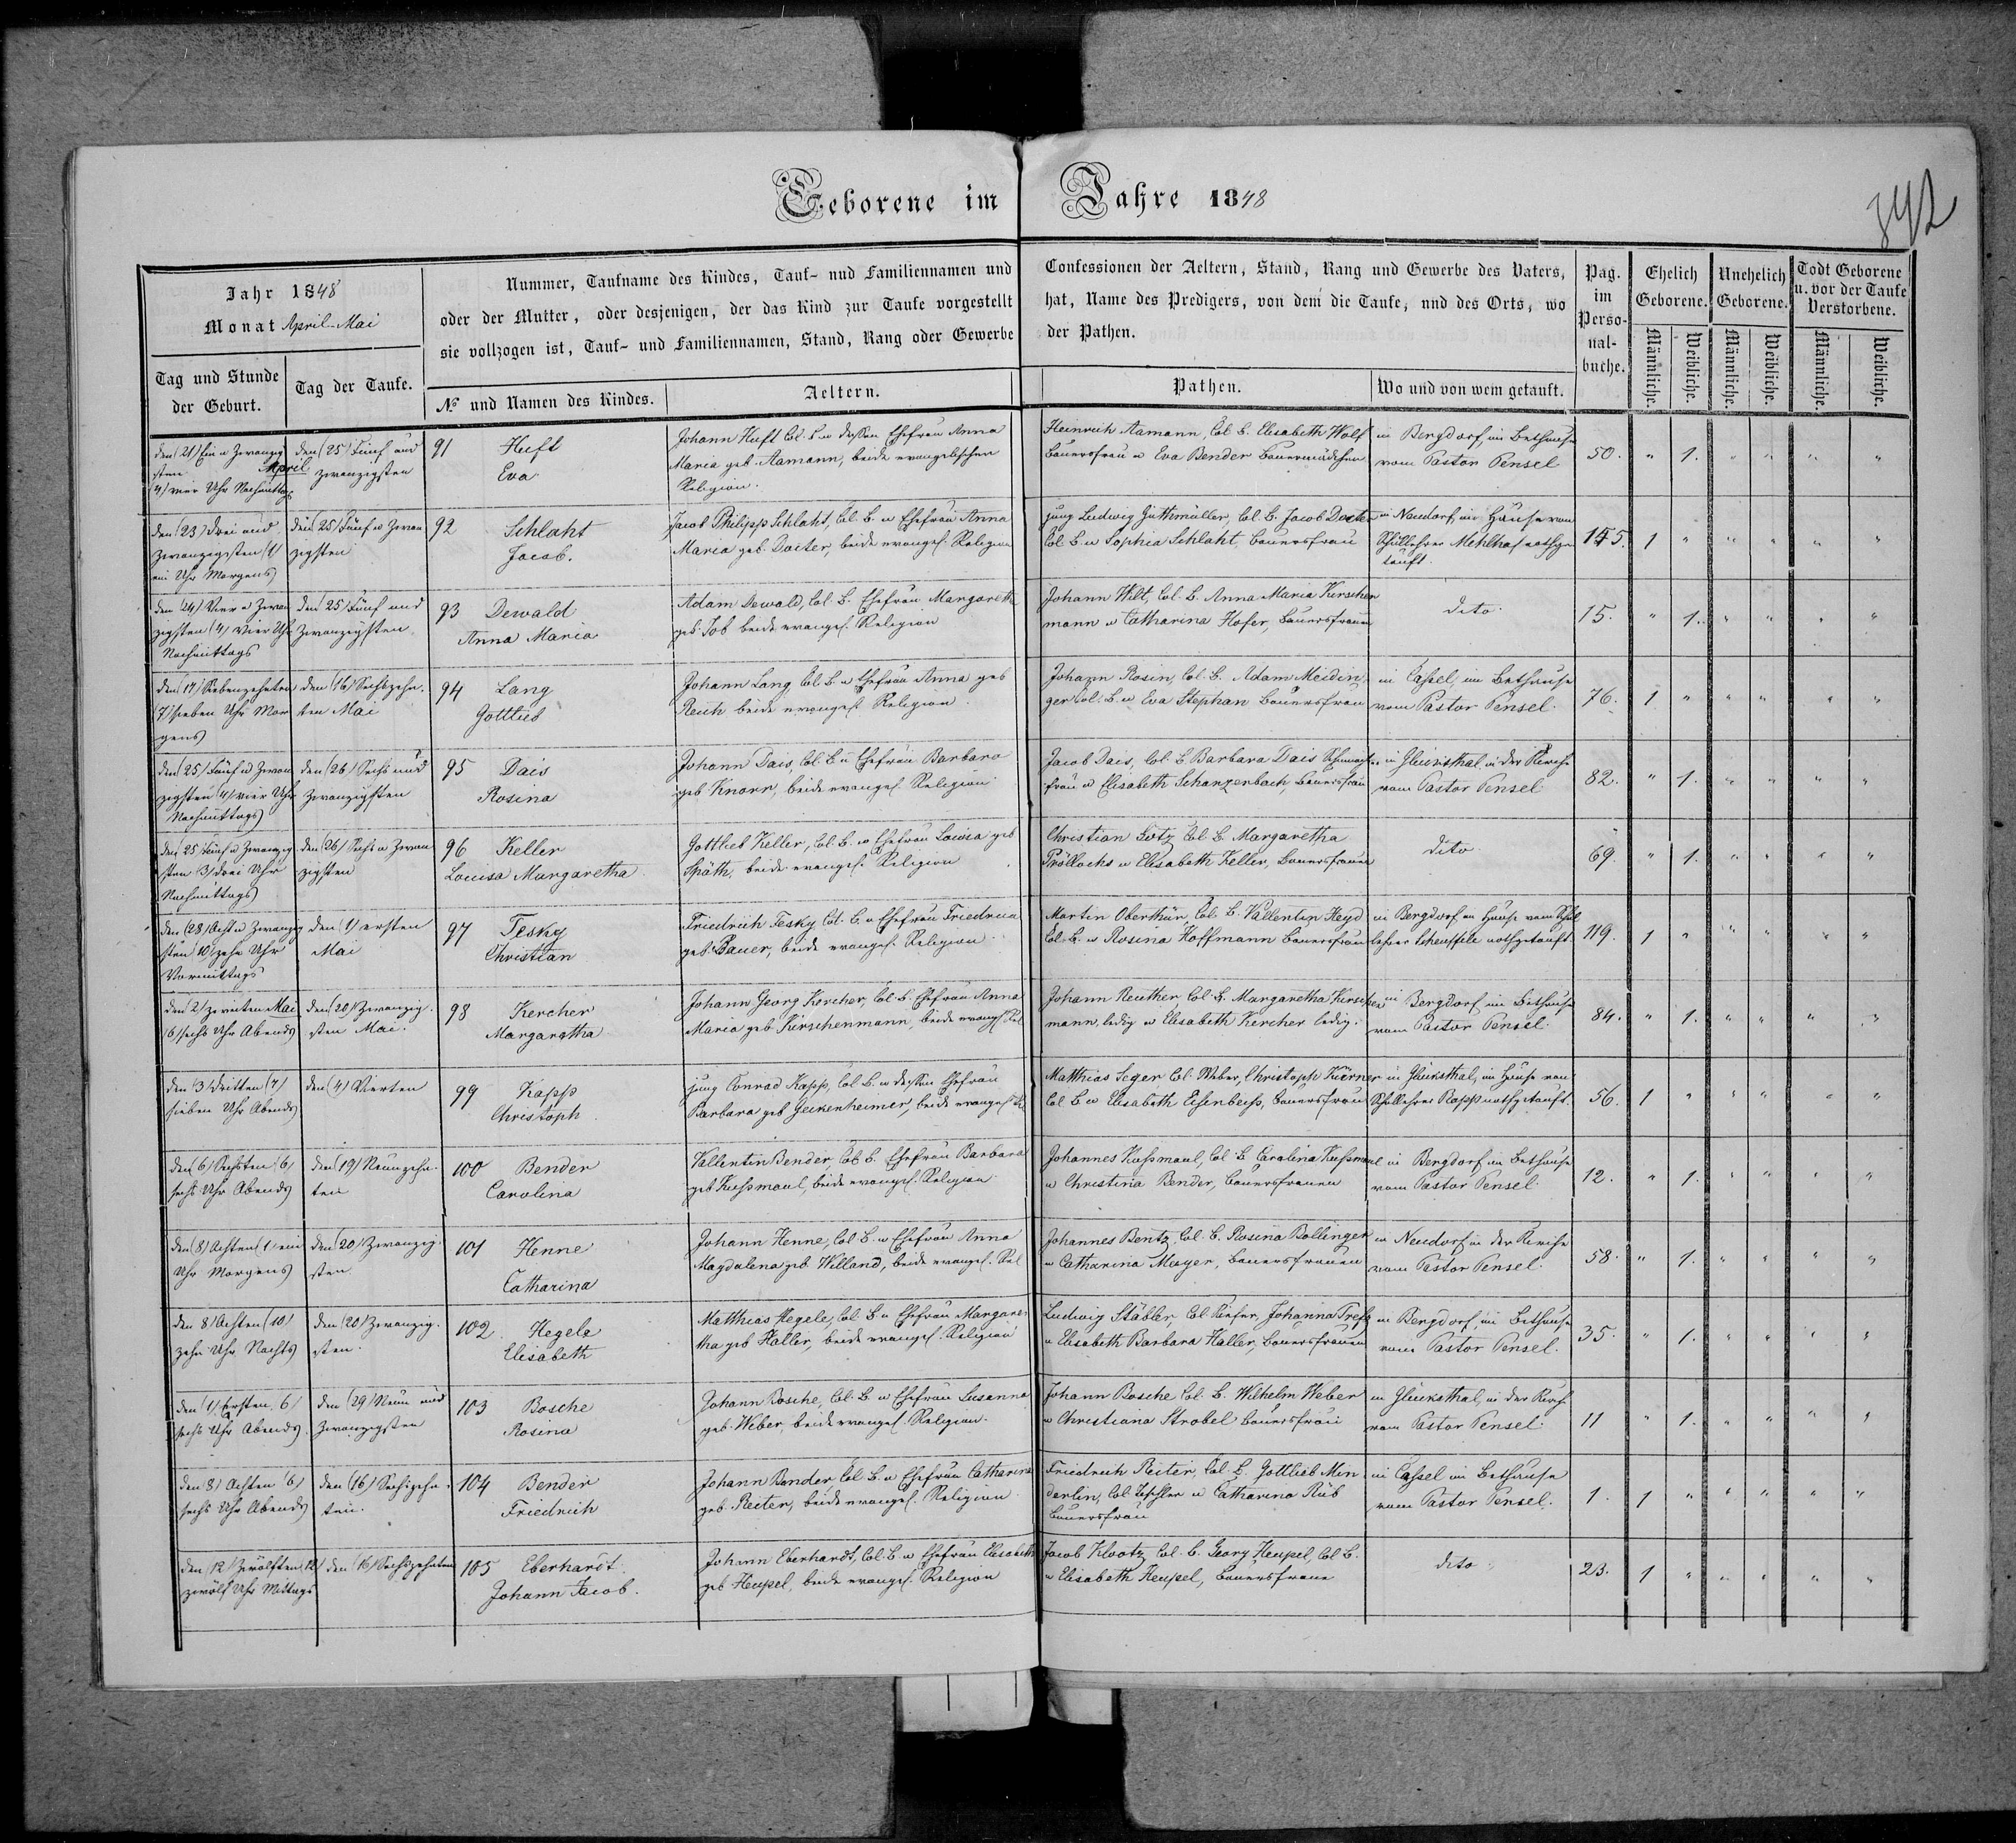 Geborene im Jahre 1848
342
Jahr 1848
Monat April-Mai
Tag und Stunde
der Geburt.
Tag der Taufe.
Nummer, Taufname des Kindes, Tauf- und Familiennamen und
oder der Mutter, oder desjenigen, der das Kind zur Taufe vorgestellt
sie vollzogen ist, Tauf- und Familiennamen, Stand, Rang oder Gewerbe
№ und Namen des Kindes.
Aeltern.
Confessionen der Aeltern, Stand, Rang und Gewerbe des Vaters,
hat, Name des Predigers, von dem die Taufe, und des Orts, wo
der Pathen.
Pathen.
Wo und von wem getauft.
Pag.
im
Perso-
nal-
buche.
Ehelich
Geborene.
Unehelich
Geborene.
Todt Geborene
u. vor der Taufe
Verstorbene.
Männliche.
Weibliche.
Männliche.
Weibliche.
Männliche.
Weibliche.
den (21) Ein u Zwanzig
sten April
(4) vier Uhr Nachmittags
den (25) Fünf und
zwanzigsten
91 Huft
Eva
Johann Huft Col. B. u dessen Ehefrau Anna
Maria geb. Aamann, beide evangelischer
Religion.
Heinrich Aamann, Col. B. Elisabeth Wolf
Bauersfrau u Eva Bender Bauermädchen
in Bergdorf, im Bethause
vom Pastor Pensel
50. " 1. " " " "
den (23) Drei und
zwanzigsten (1)
ein Uhr Morgens
den (25) Fünf u Zwan
zigsten
92 Schlaht
Jacob.
Jacob Philipp Schlaht, Col. B. u Ehefrau Anna
Maria geb. Doeter, beide evangel. Religion
jung Ludwig Guthmüller, Col. B. Jacob Doeter
Col. B. u Sophia Schlaht, Bauersfrau
in Neudorf, im Hause von
Schullehrer Mehlhaf nothge
tauft.
145. 1 " " " " "
den (24) Vier u Zwan
zigsten (4) vier Uhr
Nachmittags
den (25) Fünf und
Zwanzigsten
93 Dewald
Anna Maria
Adam Dewald, Col. B. Ehefrau Margareth
geb. Job beide evangel. Religion
Johann Wilt, Col. B. Anna Maria Kirschen
mann u Catharina Hofer, Bauersfrauen
dito
15. " 1. " " " "
den (17) Siebenzehnten
(7) sieben Uhr Mor
gens
den (16) Sechszehn-
ten Mai
94 Lang
Gottlieb
Johann Lang Col. B. u Ehefrau Anna geb
Reuh beide evangel. Religion
Johann Rosin, Col. B. Adam Meidin-
ger Col. B. u Eva Stephan Bauersfrau
in Cassel, im Bethause
vom Pastor Pensel.
76. 1 " " " " "
den (25) Fünf u Zwan
zigsten (4) vier Uhr
Nachmittags
den (26) Sechs und
Zwanzigsten
95 Dais
Rosina
Johann Dais, Col. B. u Ehefrau Barbara
geb Knorr, beide evangel. Religion
Jacob Dais, Col. B. Barbara Dais
frau u Elisabeth Schanzenbach, Bauersfrau
in Glücksthal, in der Kirche
vom Pastor Pensel
82. " 1. " " " "
den 25 Fünf u Zwanzig
sten (3) drei Uhr
Nachmittags
den (26) Sechs u Zwan
zigsten
96 Keller
Louisa Margaretha
Gottlieb Keller, Col. B. u Ehefrau Louisa geb
Späth, beide evangel. Religion
Christian Götz Col. B. Margaretha
Pröllochs u Elisabeth Keller, Bauersfrauen
dito
69. " 1. " " " "
den (28) Acht u Zwanzig
sten 10 zehn Uhr
Vormittags
den (1) ersten
Mai
97 Tesky
Christian
Friedrich Tesky Col. B. u Ehefrau Friedrica
geb. Bauer, beide evangel. Religion
Martin Oberthür, Col. B. Vallentin Heyd
Col. B. u Rosina Hoffmann Bauersfrau
in Bergdorf, im Hause vom Schul
lehrer Scheuffele nothgetauft
119. 1 " " " " "
den (2) zweiten Mai
(6) sechs Uhr Abends
den (20) Zwanzig-
sten Mai.
98 Kercher
Margaretha
Johann Georg Kercher, Col. B. Ehefrau Anna
Maria geb. Kirschenmann, beide evangel Rel
Johann Reuther Col. B. Margaretha Kirschen
mann, ledig u Elisabeth Kercher ledig.
in Bergdorf im Bethause
vom Pastor Pensel.
84. " 1. " " " "
den (3) Dritten (7)
sieben Uhr Abends
den (4) Vierten
99 Kapp
Christoph
jung Conrad Kapp, Col. B. u dessen Ehefrau
Barbara geb Geckenheimer, beide evangel Rel
Matthias Seger Col. Weber, Christoph Körner
Col. B. u Elisabeth Eisenbeiss, Bauersfrau
in Glücksthal, im Hause von
Schullehrer Rapp nothgetauft.
56. 1 " " " " "
den (6) Sechsten (6)
sechs Uhr Abends
den (19) Neunzehn-
ten
100 Bender
Carolina
Vallentin Bender, Col. B. Ehefrau Barbara
geb Kussmaul, beide evangel. Religion
Johannes Kussmaul, Col. B. Carolina Kussmaul
u Christina Bender, Bauersfrauen
in Bergdorf im Bethause
vom Pastor Pensel
12. " 1. " " " "
den (8) Achten (1) ein
Uhr Morgens
den (20) Zwanzig-
sten
101 Henne
Catharina
Johann Henne, Col. B. u Ehefrau Anna
Magdalena geb Willand, beide evangel. Rel
Johannes Bentz, Col. B. Rosina Bollinger
u Catharina Meyer, Bauersfrauen
in Neudorf in der Kirche
vom Pastor Pensel.
58. " 1. " " " "
den 8) Achten (10)
zehn Uhr Nachts
den (20) Zwanzig-
sten.
102. Hegele
Elisabeth
Matthias Hegele, Col. B. u Ehefrau Margare-
tha geb Haller, beide evangel. Religion
Ludwig Stäbler, Col. Küfer, Johanna Trefz
u Elisabeth Barbara Haller, Bauersfrauen
in Bergdorf, im Bethause
vom Pastor Pensel.
35. " 1. " " " "
den (1) Ersten 6)
sechs Uhr Abends
den (29) Neun und
Zwanzigsten
103 Bosche
Rosina
Johann Bosche, Col. B. u Ehefrau Susanna
geb. Weber, beide evangel. Religion.
Johann Bosche Col. B. Wilhelm Weber
u Christiana Strobel Bauersfrau
in Glücksthal, in der Kirche
vom Pastor Pensel.
11 " 1. " " " "
den 8) Achten (6)
sechs Uhr Abends
den (16) Sechszehn-
ten.
104 Bender
Friedrich
Johann Bender Col. B. u Ehefrau Catharina
geb. Reiter, beide evangel. Religion
Friedrich Reiter, Col. B. Gottlieb Min
derlin, Col. Tischler u Catharina Rüb
Bauersfrau
in Cassel im Bethause
vom Pastor Pensel.
1. 1 " " " " "
den (12) Zwölften (12)
zwölf Uhr Mittags
den (16) Sechszehnten
105 Eberhardt
Johann Jacob.
Johann Eberhardt, Col. B. u Ehefrau Elisabeth
geb Heupel, beide evangel. Religion
Jacob Klootz Col. B. Georg Heupel, Col. B.
u Elisabeth Heupel, Bauersfrau
dito
23. 1 " " " " "